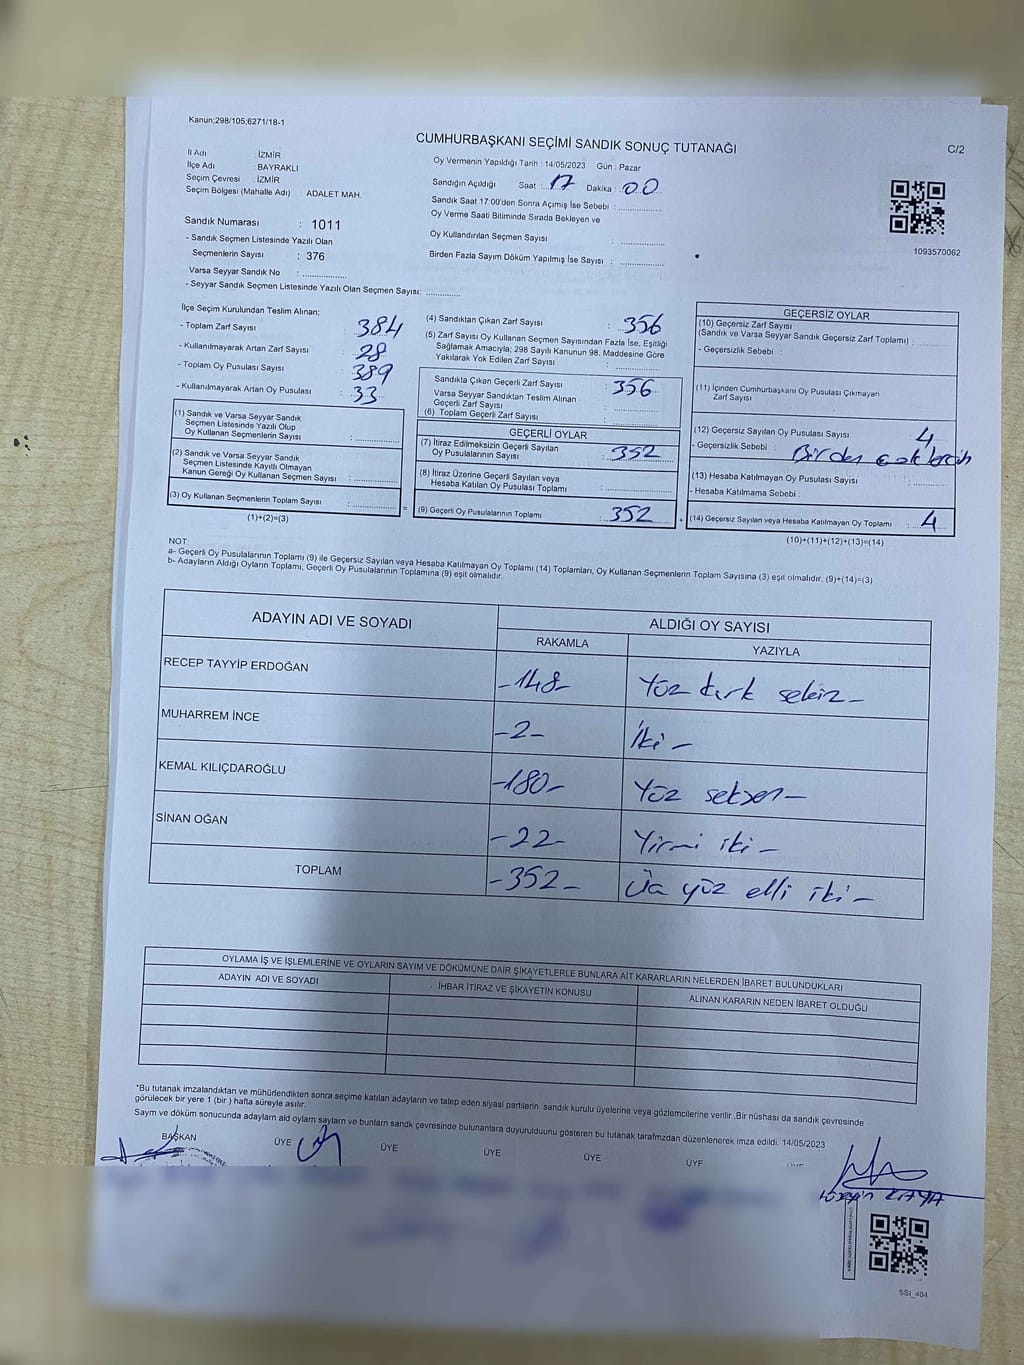 Kanun;298/105,6271/18-1
CUMHURBAŞKANI SEÇİMİ SANDIK SONUÇ TUTANAĞI
C/2
İl Adı : İZMİR
İlçe Adı : BAYRAKLI
Seçim Çevresi : İZMİR
Seçim Bölgesi (Mahalle Adı) : ADALET MAH.
Oy Vermenin Yapıldığı Tarih : 14/05/2023 Gün : Pazar
Sandığın Açıldığı Saat : 17 Dakika : 00
Sandık Saat 17:00'den Sonra Açımış İse Sebebi :
Oy Verme Saati Bitiminde Sırada Bekleyen ve
Oy Kullandırılan Seçmen Sayısı :
Birden Fazla Sayım Döküm Yapılmış İse Sayısı :
1093570062
Sandık Numarası : 1011
- Sandık Seçmen Listesinde Yazılı Olan
Seçmenlerin Sayısı : 376
Varsa Seyyar Sandık No :
- Seyyar Sandık Seçmen Listesinde Yazılı Olan Seçmen Sayısı:
İlçe Seçim Kurulundan Teslim Alınan;
- Toplam Zarf Sayısı : 384
- Kullanılmayarak Artan Zarf Sayısı : 28
- Toplam Oy Pusulası Sayısı : 389
- Kullanılmayarak Artan Oy Pusulası : 33
(1) Sandık ve Varsa Seyyar Sandık
Seçmen Listesinde Yazılı Olup
Oy Kullanan Seçmenlerin Sayısı :
(2) Sandık ve Varsa Seyyar Sandık
Seçmen Listesinde Kayıtlı Olmayan
Kanun Gereği Oy Kullanan Seçmen Sayısı :
(3) Oy Kullanan Seçmenlerin Toplam Sayısı :
(1)+(2)=(3)
=
(4) Sandıktan Çıkan Zarf Sayısı : 356
(5) Zarf Sayısı Oy Kullanan Seçmen Sayısından Fazla İse, Eşitliği
Sağlamak Amacıyla; 298 Sayılı Kanunun 98. Maddesine Göre
Yakılarak Yok Edilen Zarf Sayısı :
Sandıkta Çıkan Geçerli Zarf Sayısı : 356
Varsa Seyyar Sandıktan Teslim Alınan
Geçerli Zarf Sayısı :
(6) Toplam Geçerli Zarf Sayısı :
GEÇERLİ OYLAR
(7) İtiraz Edilmeksizin Geçerli Sayılan
Oy Pusulalarının Sayısı : 352
(8) İtiraz Üzerine Geçerli Sayılan veya
Hesaba Katılan Oy Pusulası Toplamı :
(9) Geçerli Oy Pusulalarının Toplamı : 352
+
GEÇERSİZ OYLAR
(10) Geçersiz Zarf Sayısı
(Sandık ve Varsa Seyyar Sandık Geçersiz Zarf Toplamı) :
- Geçersizlik Sebebi :
(11) İçinden Cumhurbaşkanı Oy Pusulası Çıkmayan
Zarf Sayısı
(12) Geçersiz Sayılan Oy Pusulası Sayısı 4
- Geçersizlik Sebebi : Birden çok tercih
(13) Hesaba Katılmayan Oy Pusulası Sayısı
- Hesaba Katılmama Sebebi :
(14) Geçersiz Sayılan veya Hesaba Katılmayan Oy Toplamı : 4
(10)+(11)+(12)+(13)=(14)
NOT:
a- Geçerli Oy Pusulalarının Toplamı (9) ile Geçersiz Sayılan veya Hesaba Katılmayan Oy Toplamı (14) Toplamları, Oy Kullanan Seçmenlerin Toplam Sayısına (3) eşit olmalıdır. (9)+(14)=(3)
b- Adayların Aldığı Oyların Toplamı, Geçerli Oy Pusulalarının Toplamına (9) eşit olmalıdır.
ADAYIN ADI VE SOYADI ALDIĞI OY SAYISI
RAKAMLA YAZIYLA
RECEP TAYYİP ERDOĞAN -148- Yüz kırk sekiz -
MUHARREM İNCE -2- İki -
KEMAL KILIÇDAROĞLU -180- Yüz seksen -
SİNAN OĞAN -22- Yirmi iki -
TOPLAM -352- Üç yüz elli iki -
OYLAMA İŞ VE İŞLEMLERİNE VE OYLARIN SAYIM VE DÖKÜMÜNE DAİR ŞİKAYETLERLE BUNLARA AİT KARARLARIN NELERDEN İBARET BULUNDUKLARI
ADAYIN ADI VE SOYADI İHBAR İTİRAZ VE ŞİKAYETİN KONUSU ALINAN KARARIN NEDEN İBARET OLDUĞU
*Bu tutanak imzalandıktan ve mühürlendikten sonra seçime katılan adayların ve talep eden siyasi partilerin sandık kurulu üyelerine veya gözlemcilerine verilir .Bir nüshası da sandık çevresinde
görülecek bir yere 1 (bir ) hafta süreyle asılır.
Sayım ve döküm sonucunda adayların ald oyların sayların ve bunların sandk çevresinde bulunanlara duyurulduunu gösteren bu tutanak tarafmzdan düzenlenerek imza edildi. 14/05/2023
BAŞKAN ÜYE ÜYE ÜYE ÜYE ÜYE
Hüseyin KAYA
SSI_404